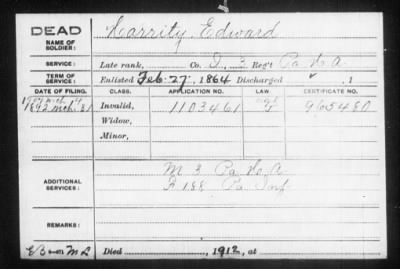 DEAD
NAME OF SOLDIER: Garrity, Edward
SERVICE: Late rank, Co. I, 3 Reg't Pa H A
TERM OF SERVICE: Enlisted Feb. 27, 1864 Discharged , 1
DATE OF FILING. CLASS. APPLICATION NO. LAW. CERTIFICATE NO.
1892 Mch. 31 Invalid, 1103461 965480
Widow,
Minor,
ADDITIONAL SERVICES: M 3 Pa H A
F 188 Pa Inf
REMARKS:
Died , 1912, at